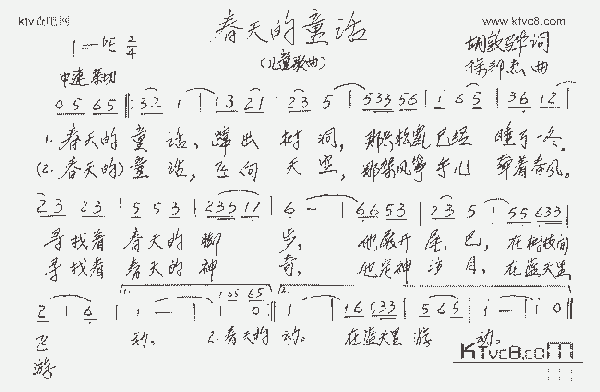 ktv歌吧网
www.ktvc8.com
春天的童话
(儿童歌曲)
1=♭E 2/4
胡敦骅 词
中速 亲切
曲
0 5 6 5 ‖: 3 2 1 | 1 3 2 1 | 2 3 5 | 5 3 3 5 6 | 1 6 5 | 3 6 1 2 |
1. 春天的 童 话, 蹿出 树 洞, 那只松鼠已经 睡了一冬。
(2. 春天的) 童 话, 飞向 天 空, 那架风筝手儿 牵着春风。
2 3 2 3 | 5 5 3 | 2 3 5 1 1 | 6 - | 6 6 5 3 | 2 3 5 | 5 5 6 3 3 |
寻找着 春天的 脚 步, 他展开 尾 巴, 在树枝间
寻找着 春天的 神 奇, 他 神 在蓝天里
2 1 6 | 1 - | 1 0 :‖ 1 - | 1 6 1 3 3 | 5 6 5 | 1 - | 1 0 ‖
飞 动。 2. 春天的 动。 在蓝天里 游 动。
游
KTvc8.com